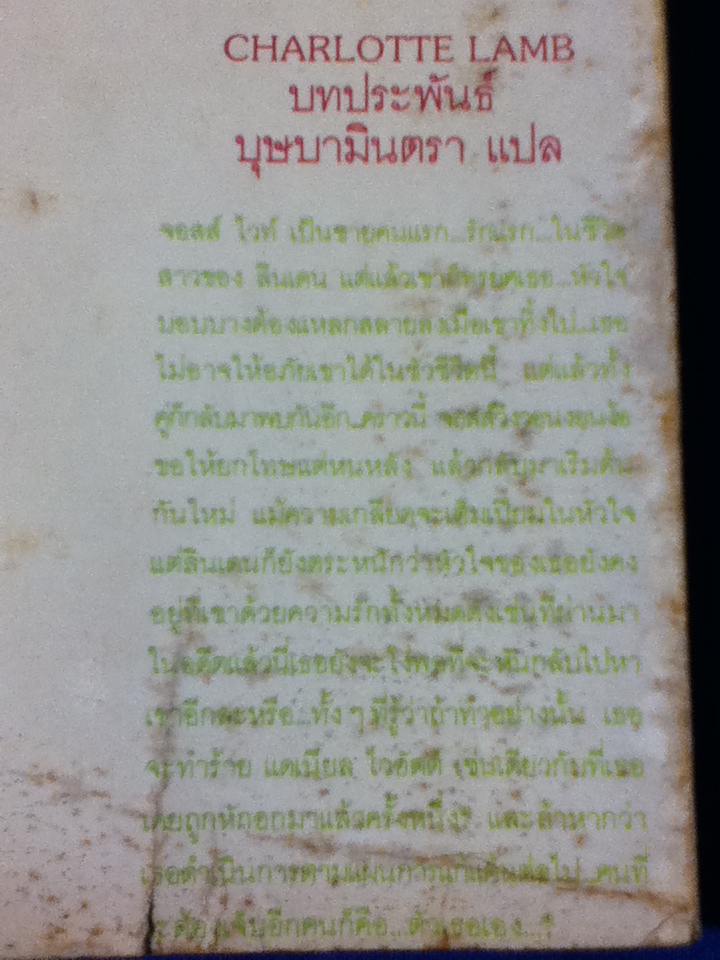 CHARLOTTE LAMB
บทประพันธ์
บุษบามินตรา แปล
จอสส์ ไวท์ เป็นชายคนแรก...รักแรก...ในชีวิต
สาวของ ลินเดน แต่แล้วเขาก็ทรยศเธอ...หัวใจ
บอบบางต้องแหลกสลายลงเมื่อเขาทิ้งไป...เธอ
ไม่อาจให้อภัยเขาได้ในชั่วชีวิตนี้ แต่แล้วทั้ง
คู่ก็กลับมาพบกันอีก...คราวนี้ จอสส์วิงวอนงอนง้อ
ขอให้ยกโทษแต่หนหลัง แล้วกลับมาเริ่มต้น
กันใหม่ แม้ความเกลียดจะเต็มเปี่ยมในหัวใจ
แต่ลินเดนก็ยังตระหนักว่าหัวใจของเธอยังคง
อยู่ที่เขาด้วยความรักทั้งหมดดังเช่นที่ผ่านมา
ในอดีตแล้วนี่เธอยังจะโง่พอที่จะหันกลับไปหา
เขาอีกละหรือ...ทั้ง ๆ ที่รู้ว่าถ้าทำอย่างนั้น เธอ
จะทำร้าย แดเนียล ไวอัตต์ เช่นเดียวกับที่เธอ
เคยถูกหักอกมาแล้วครั้งหนึ่ง? และถ้าหากว่า
เธอดำเนินการตามแผนการแก้แค้นต่อไป...คนที่
จะต้องเจ็บอีกคนก็คือ...ตัวเธอเอง...?